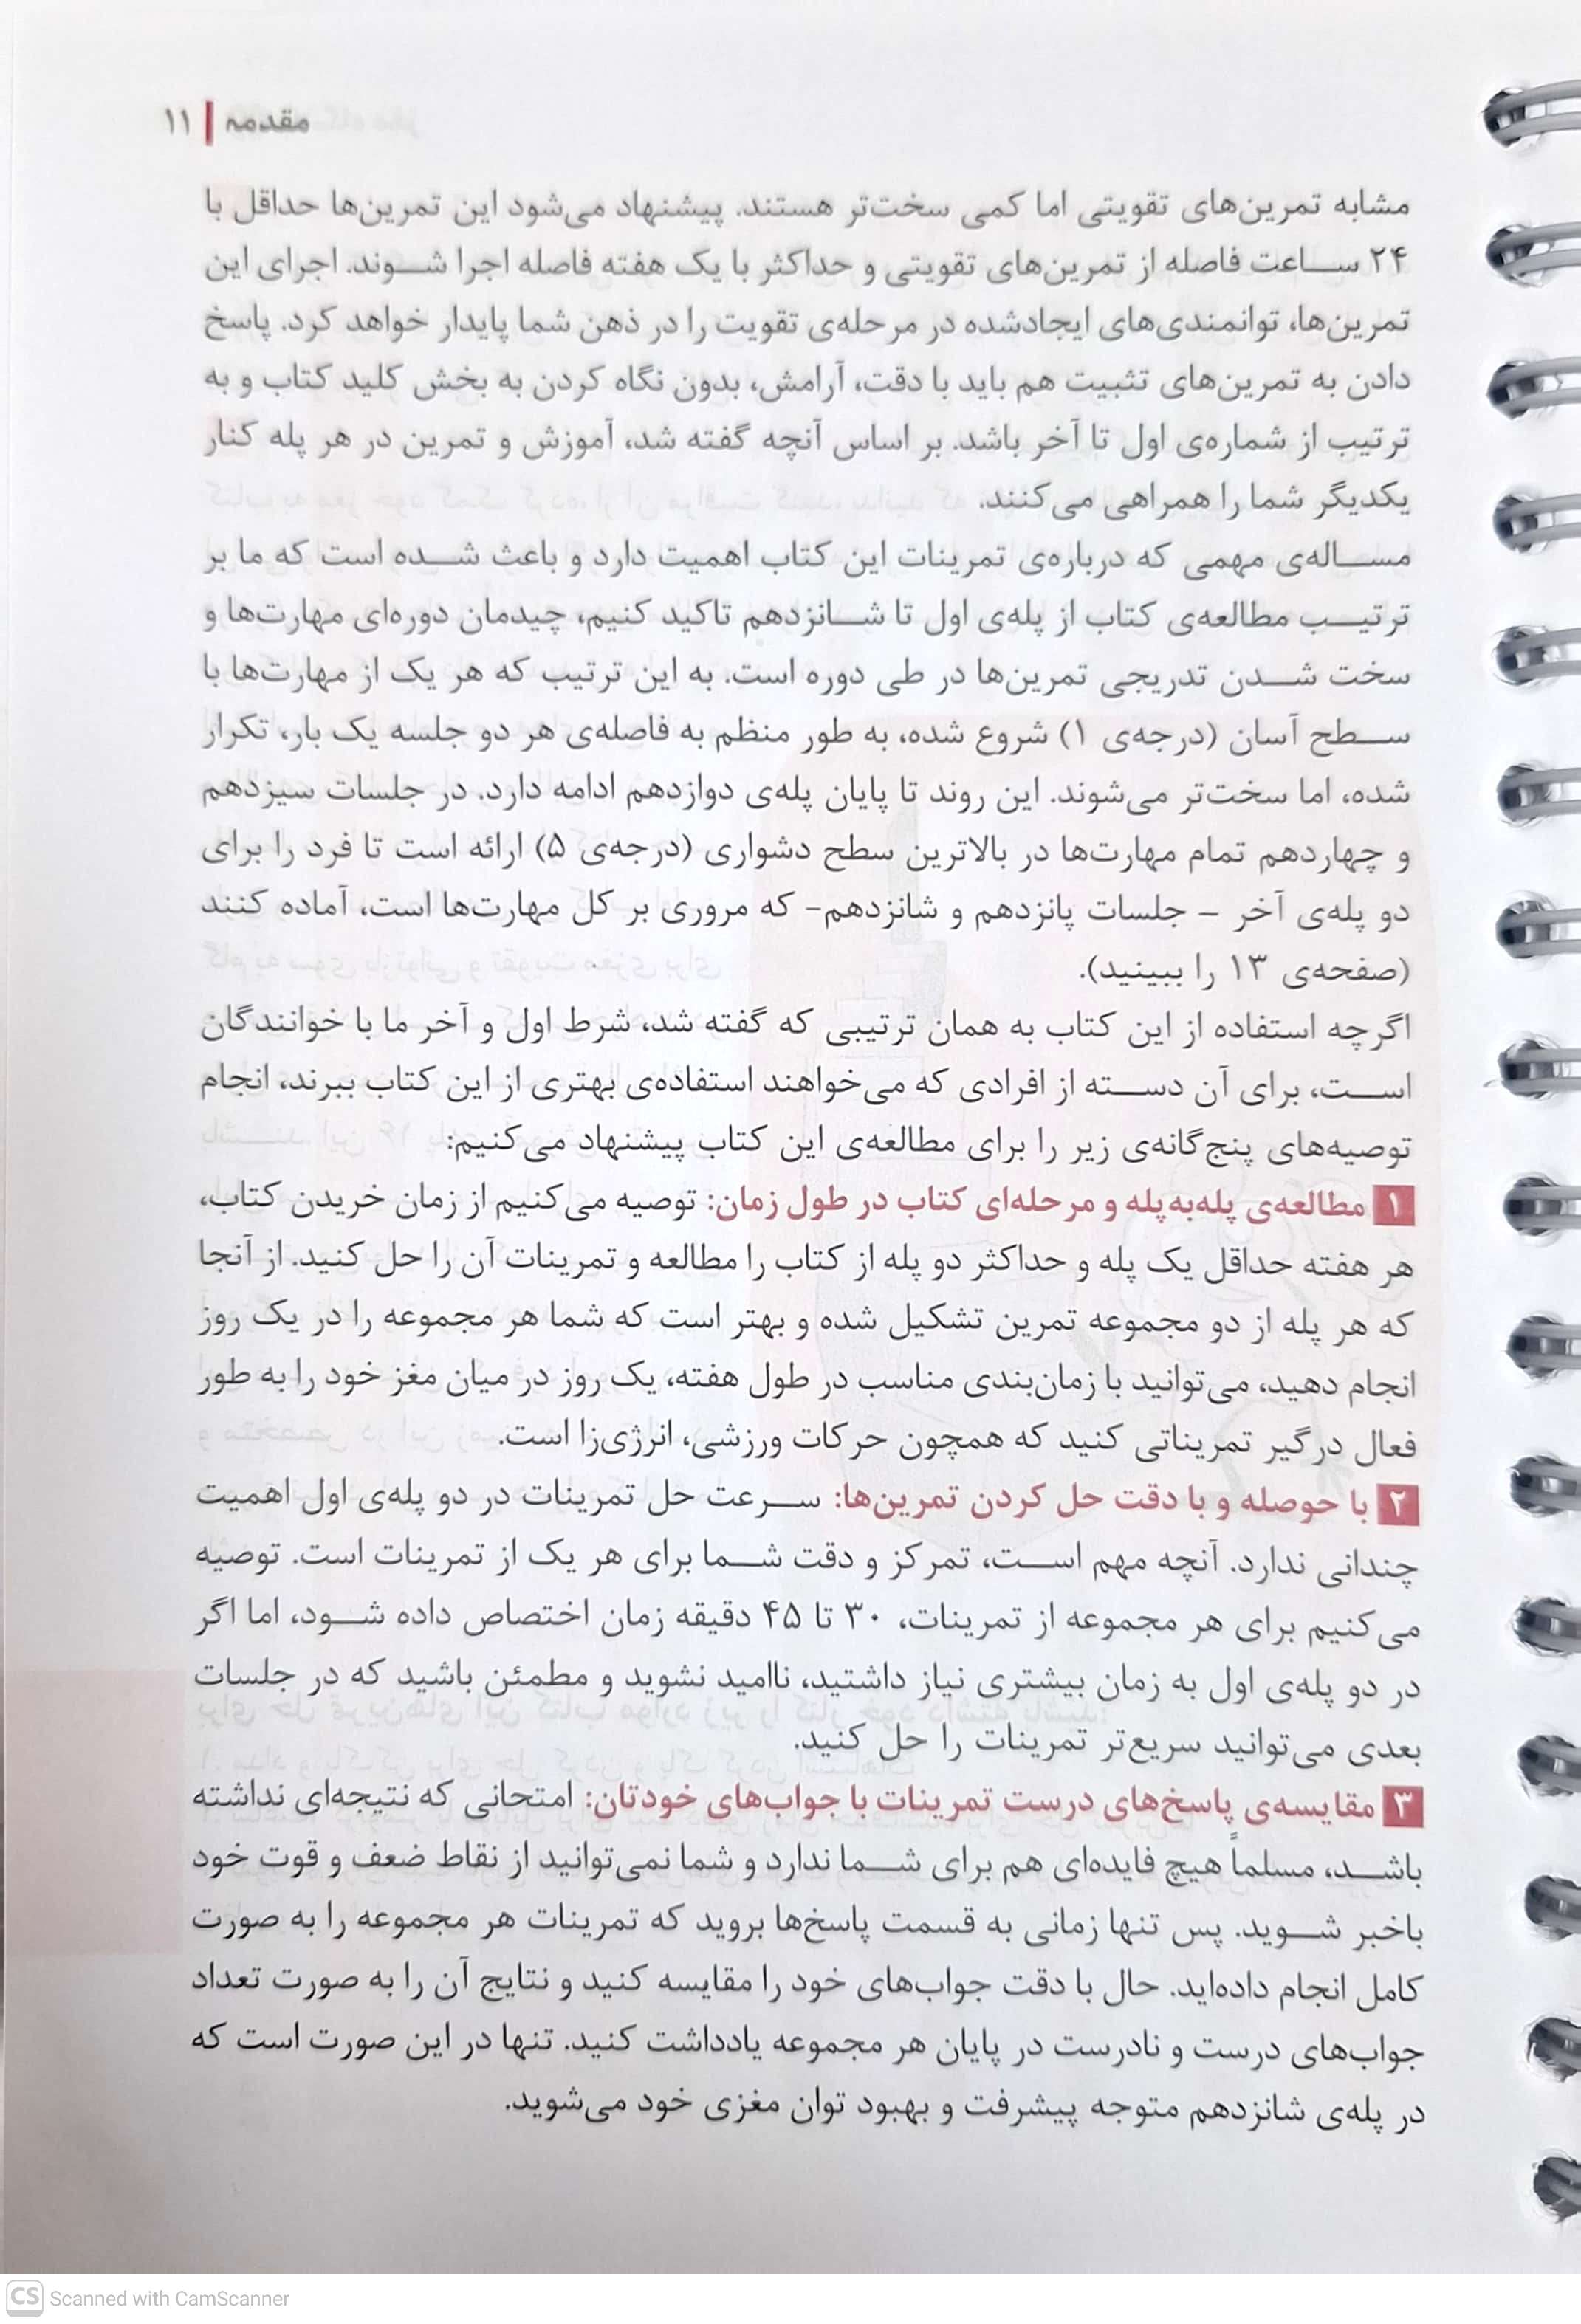 مقدمه | ۱۱
مشابه تمرین‌های تقویتی اما کمی سخت‌تر هستند. پیشنهاد می‌شود این تمرین‌ها حداقل با
۲۴ ساعت فاصله از تمرین‌های تقویتی و حداکثر با یک هفته فاصله اجرا شوند. اجرای این
تمرین‌ها، توانمندی‌های ایجادشده در مرحله‌ی تقویت را در ذهن شما پایدار خواهد کرد. پاسخ
دادن به تمرین‌های تثبیت هم باید با دقت، آرامش، بدون نگاه کردن به بخش کلید کتاب و به
ترتیب از شماره‌ی اول تا آخر باشد. بر اساس آنچه گفته شد، آموزش و تمرین در هر پله کنار
یکدیگر شما را همراهی می‌کنند.
مساله‌ی مهمی که درباره‌ی تمرینات این کتاب اهمیت دارد و باعث شده است که ما بر
ترتیب مطالعه‌ی کتاب از پله‌ی اول تا شانزدهم تاکید کنیم، چیدمان دوره‌ای مهارت‌ها و
سخت شدن تدریجی تمرین‌ها در طی دوره است. به این ترتیب که هر یک از مهارت‌ها با
سطح آسان (درجه‌ی ۱) شروع شده، به طور منظم به فاصله‌ی هر دو جلسه یک بار، تکرار
شده، اما سخت‌تر می‌شوند. این روند تا پایان پله‌ی دوازدهم ادامه دارد. در جلسات سیزدهم
و چهاردهم تمام مهارت‌ها در بالاترین سطح دشواری (درجه‌ی ۵) ارائه است تا فرد را برای
دو پله‌ی آخر – جلسات پانزدهم و شانزدهم– که مروری بر کل مهارت‌ها است، آماده کنند
(صفحه‌ی ۱۳ را ببینید).
اگرچه استفاده از این کتاب به همان ترتیبی که گفته شد، شرط اول و آخر ما با خوانندگان
است، برای آن دسته از افرادی که می‌خواهند استفاده‌ی بهتری از این کتاب ببرند، انجام
توصیه‌های پنج‌گانه‌ی زیر را برای مطالعه‌ی این کتاب پیشنهاد می‌کنیم:
۱ مطالعه‌ی پله‌به‌پله و مرحله‌ای کتاب در طول زمان: توصیه می‌کنیم از زمان خریدن کتاب،
هر هفته حداقل یک پله و حداکثر دو پله از کتاب را مطالعه و تمرینات آن را حل کنید. از آنجا
که هر پله از دو مجموعه تمرین تشکیل شده و بهتر است که شما هر مجموعه را در یک روز
انجام دهید، می‌توانید با زمان‌بندی مناسب در طول هفته، یک روز در میان مغز خود را به طور
فعال درگیر تمریناتی کنید که همچون حرکات ورزشی، انرژی‌زا است.
۲ با حوصله و با دقت حل کردن تمرین‌ها: سرعت حل تمرینات در دو پله‌ی اول اهمیت
چندانی ندارد. آنچه مهم است، تمرکز و دقت شما برای هر یک از تمرینات است. توصیه
می‌کنیم برای هر مجموعه از تمرینات، ۳۰ تا ۴۵ دقیقه زمان اختصاص داده شود، اما اگر
در دو پله‌ی اول به زمان بیشتری نیاز داشتید، ناامید نشوید و مطمئن باشید که در جلسات
بعدی می‌توانید سریع‌تر تمرینات را حل کنید.
۳ مقایسه‌ی پاسخ‌های درست تمرینات با جواب‌های خودتان: امتحانی که نتیجه‌ای نداشته
باشد، مسلماً هیچ فایده‌ای هم برای شما ندارد و شما نمی‌توانید از نقاط ضعف و قوت خود
باخبر شوید. پس تنها زمانی به قسمت پاسخ‌ها بروید که تمرینات هر مجموعه را به صورت
کامل انجام داده‌اید. حال با دقت جواب‌های خود را مقایسه کنید و نتایج آن را به صورت تعداد
جواب‌های درست و نادرست در پایان هر مجموعه یادداشت کنید. تنها در این صورت است که
در پله‌ی شانزدهم متوجه پیشرفت و بهبود توان مغزی خود می‌شوید.
CS Scanned with CamScanner